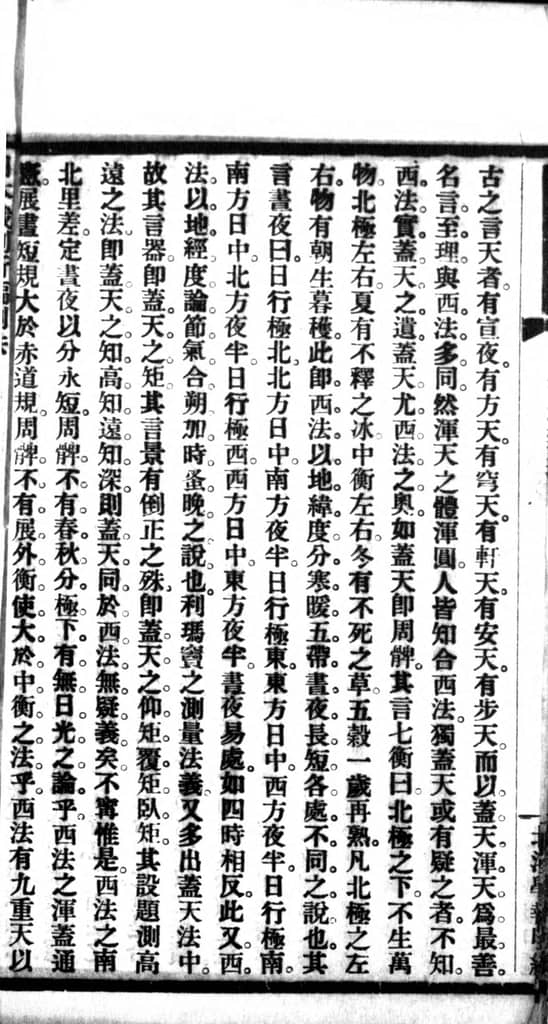 古之言天者。有宣夜。有方天。有穹天。有軒天。有安天。有步天。而以蓋天渾天爲最善。
名言至理與西法多同。然渾天之體渾圓。人皆知合西法。獨蓋天或有疑之者。不知
西法實蓋天之遺。蓋天尤西法之奧。如蓋天即周髀。其言七衡曰。北極之下不生萬
物。北極左右夏有不釋之冰。中衡左右冬有不死之草。五穀一歲再熟。凡北極之左
右。物有朝生暮穫。此即西法以地緯度分寒暖五帶。晝夜長短各處不同之說也。其
言晝夜曰。日行極北。北方日中。南方夜半。日行極東。東方日中。西方夜半。日行極南。
南方日中。北方夜半。日行極西。西方日中。東方夜半。晝夜易處。如四時相反。此又西
法以地經度論節氣合朔加時蚤晚之說也。利瑪竇之測量法義。又多出蓋天法中。
故其言器即蓋天之矩。其言景有倒正之殊。即蓋天之仰矩覆矩臥矩。其設題測高
遠之法。即蓋天之知高知遠知深。則蓋天同於西法無疑義矣。不寗惟是。西法之南
北里差定晝夜以分永短。周髀不有春秋分極下有無日光之論乎。西法之渾蓋通
憲展晝短規大於赤道規。周髀不有展外衡使大於中衡之法乎。西法有九重天以